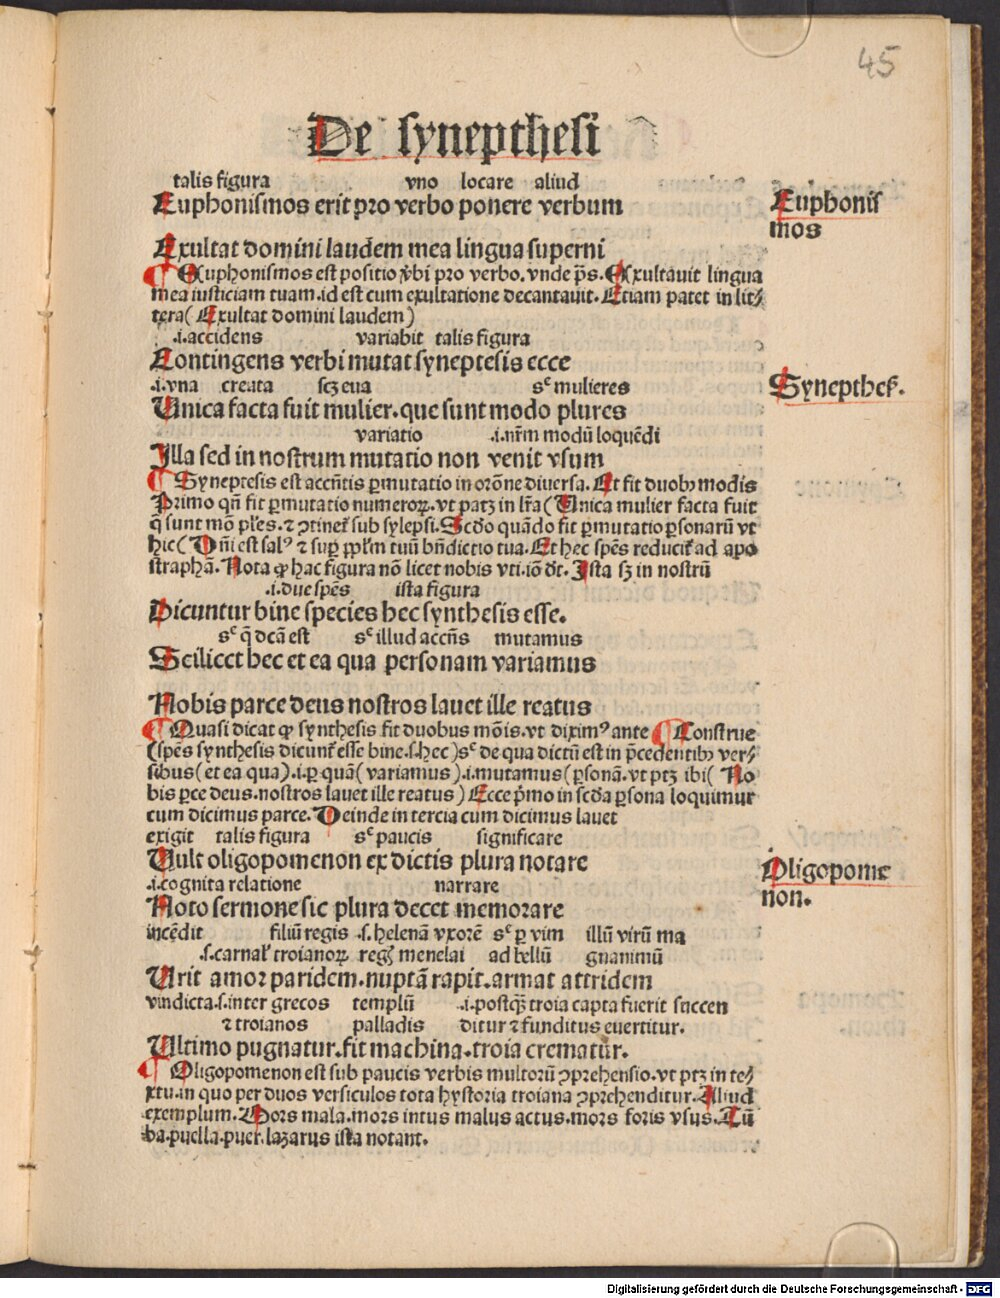 45
De syneptheſi
talis figura vno locare aliud
Euphoniſmos erit pro verbo ponere verbum
Euphoniſ
mos
Exultat domini laudem mea lingua ſuperni
¶ Euphoniſmos eſt poſitio v̆bi pro verbo. vnde p̄s. Exultauit lingua
mea iuſticiam tuam. id eſt cum exultatione decantauit. Etiam patet in lit⸗
tera( Exultat domini laudem)
.i.accidens variabit talis figura
Contingens verbi mutat ſyneptesis ecce
Synептheſ.
.i.vna creata ſcꝫ eua sͨ mulieres
Unica facta fuit mulier.que ſunt modo plures
variatio .i.nr̄m modū loquēdi
Illa ſed in noſtrum mutatio non venit vſum
¶ Syneptesis eſt accn̄tis ꝑmutatio in orōne diuerſa. Et fit duobꝫ modis
Primo qn̄ fit ꝑmutatio numeroꝝ. vt patꝫ in lr̄a( Unica mulier facta fuit
q̄ ſunt mō pl̄es. ⁊ ꝯtinet̄ ſub ſylepſi. Scd̄o quādo fit ꝑmutatio ꝑſonarū vt
hic( Dn̄i eſt salꝰ ⁊ suꝑ ppl̄m tuū bn̄dictio tua. Et hec ſpēs reducit̄ ad apo
ſtraphā. Nota ꝙ hac figura nō licet nobis vti.iō dt̄. Iſta ſꝫ in noſtrū
.i.due ſpēs iſta figura
Dicuntur bine ſpecies hec ſyntheſis eſſe.
sͨ q̄ dcā eſt sͨ illud accn̄s mutamus
Scilicet hec et ea qua perſonam variamus
Nobis parce deus noſtros lauet ille reatus
¶ Quaſi dicat ꝙ ſyntheſis fit duobus mōis. vt diximꝰ ante ¶ Conſtrue
(ſpēs ſyntheſis dicunt̄ eſſe bine.ſ.hec)sͨ de qua dictū eſt in p̄cedentibꝫ ver⸗
ſibus( et ea qua).i.ꝑ quā( variamus).i.mutamus( ꝑſonā. vt ptꝫ ibi( No
bis ꝑce deus. noſtros lauet ille reatus) Ecce p̄mo in ſcd̄a ꝑſona loquimur
cum dicimus parce. Deinde in tercia cum dicimus lauet
exigit talis figura sͨ paucis ſignificare
Uult oligopomenon ex dictis plura notare
Oligopome
non.
.i.cognita relatione narrare
Noto ſermone ſic plura decet memorare
incēdit filiū regis .ſ.helenā vxorē sͨ ꝑ vim illū virū ma
.ſ.carnal̄ troianoꝝ reḡ menelai ad bellū gnanimū
Urit amor paridem.nuptā rapit.armat attridem
vindicta.ſ.inter grecos templū .i.poſtqꝫ troia capta fuerit ſuccen
⁊ troianos palladis ditur ⁊ funditus euertitur.
Ultimo pugnatur.fit machina.troia crematur.
¶ Oligopomenon eſt ſub paucis verbis multorū ꝯprehenſio. vt ptꝫ in te⸗
xtu.in quo per duos verſiculos tota hyſtoria troiana ꝯprehenditur. Aliud
exemplum. Mors mala.mors intus malus actus.mors foris vſus. Tū
ba.puella.puer.lazarus iſta notant.
Digitalisierung gefördert durch die Deutsche Forschungsgemeinschaft - DFG